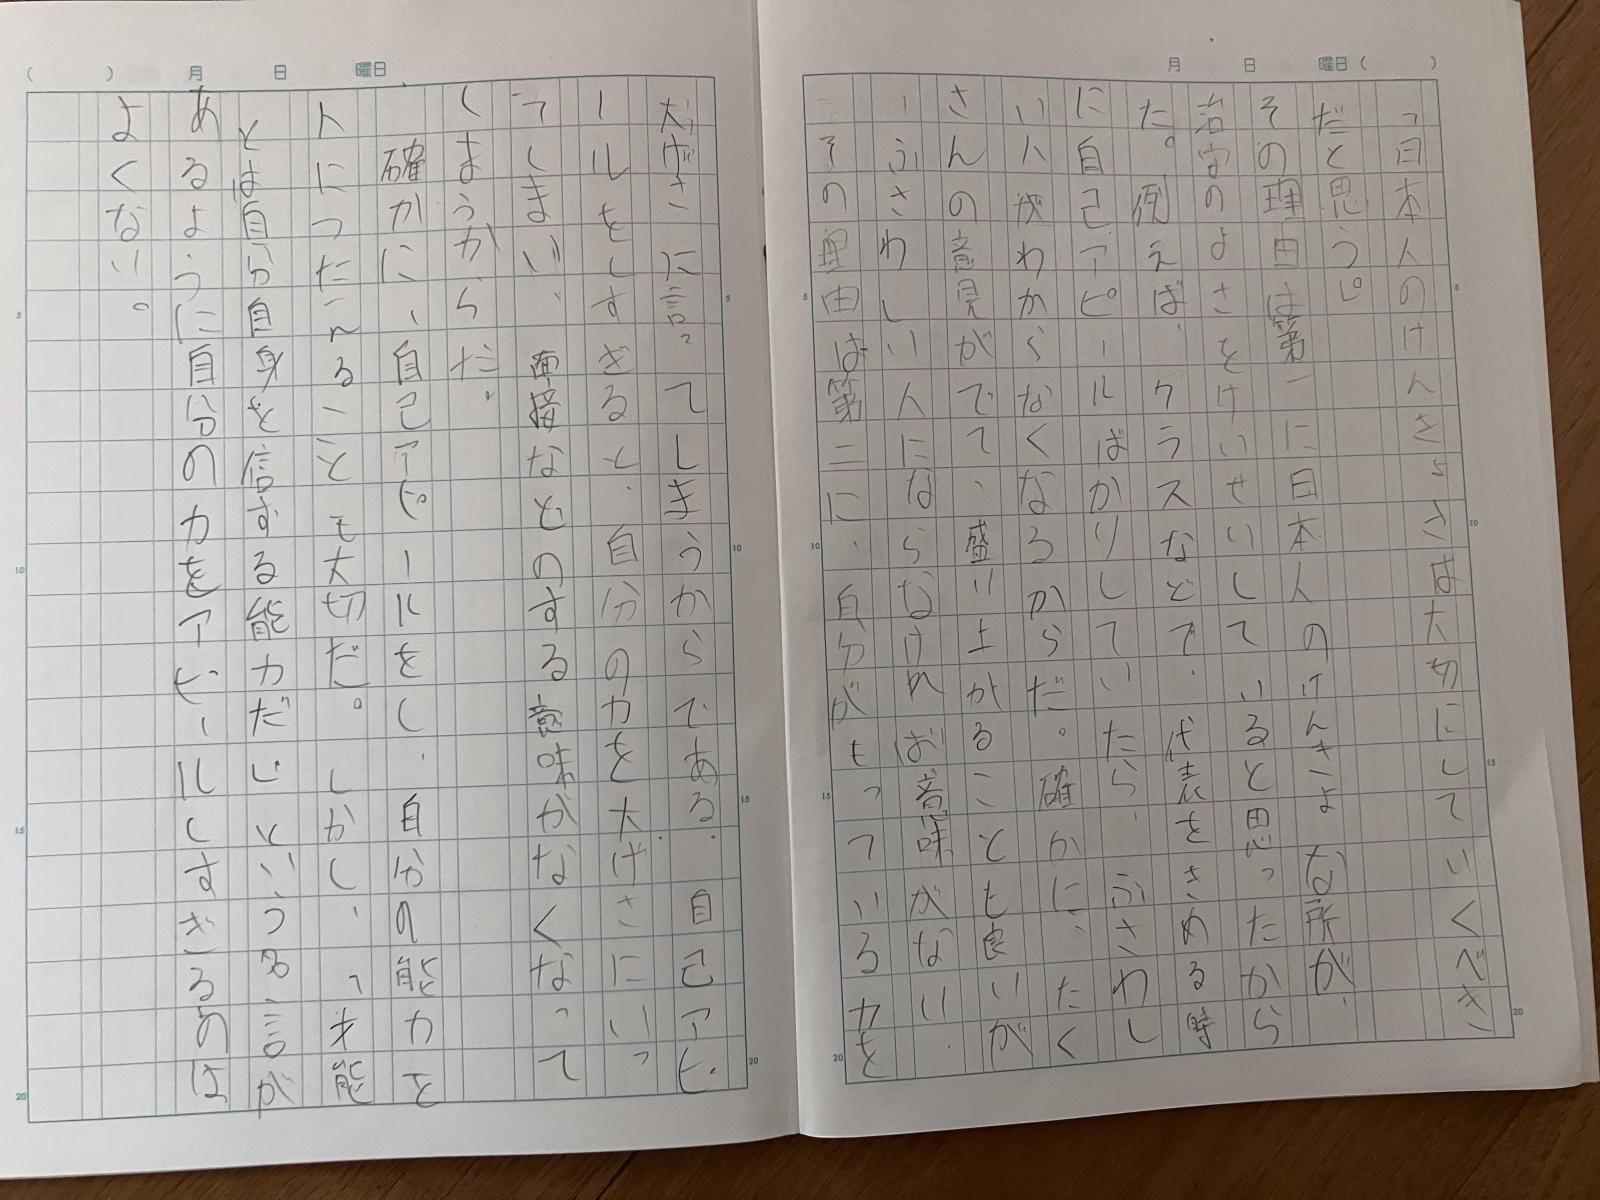 月 日 曜日( )
「日本人のけんきょさは大切にしていくべき
だと思う。」
その理由は第一に日本人のけんきょな所が、
治安のよさをけいせいしていると思ったから
た。例えば、クラスなどで、代表をきめる時
に自己アピールばかりしていたら、ふさわし
い人がわからなくなるからだ。確かに、たく
さんの意見がでて、盛り上がることも良いが
、ふさわしい人にならなければ意味がない。
その理由は第二に、自分がもっている力を
大げさに言ってしまうからである。自己アピ
ールをしすぎると、自分の力を大げさにいっ
てしまい、面接などのする意味がなくなって
しまうから、だ。
確かに、自己アピールをし、自分の能力を
人につたえることも大切だ。しかし、「才能
とは自分自身を信ずる能力だ」という名言が
あるように自分の力をアピールしすぎるのは
よくない。
( ) 月 日 曜日
5
10
15
20
5
10
15
20
5
10
15
20
5
10
15
20